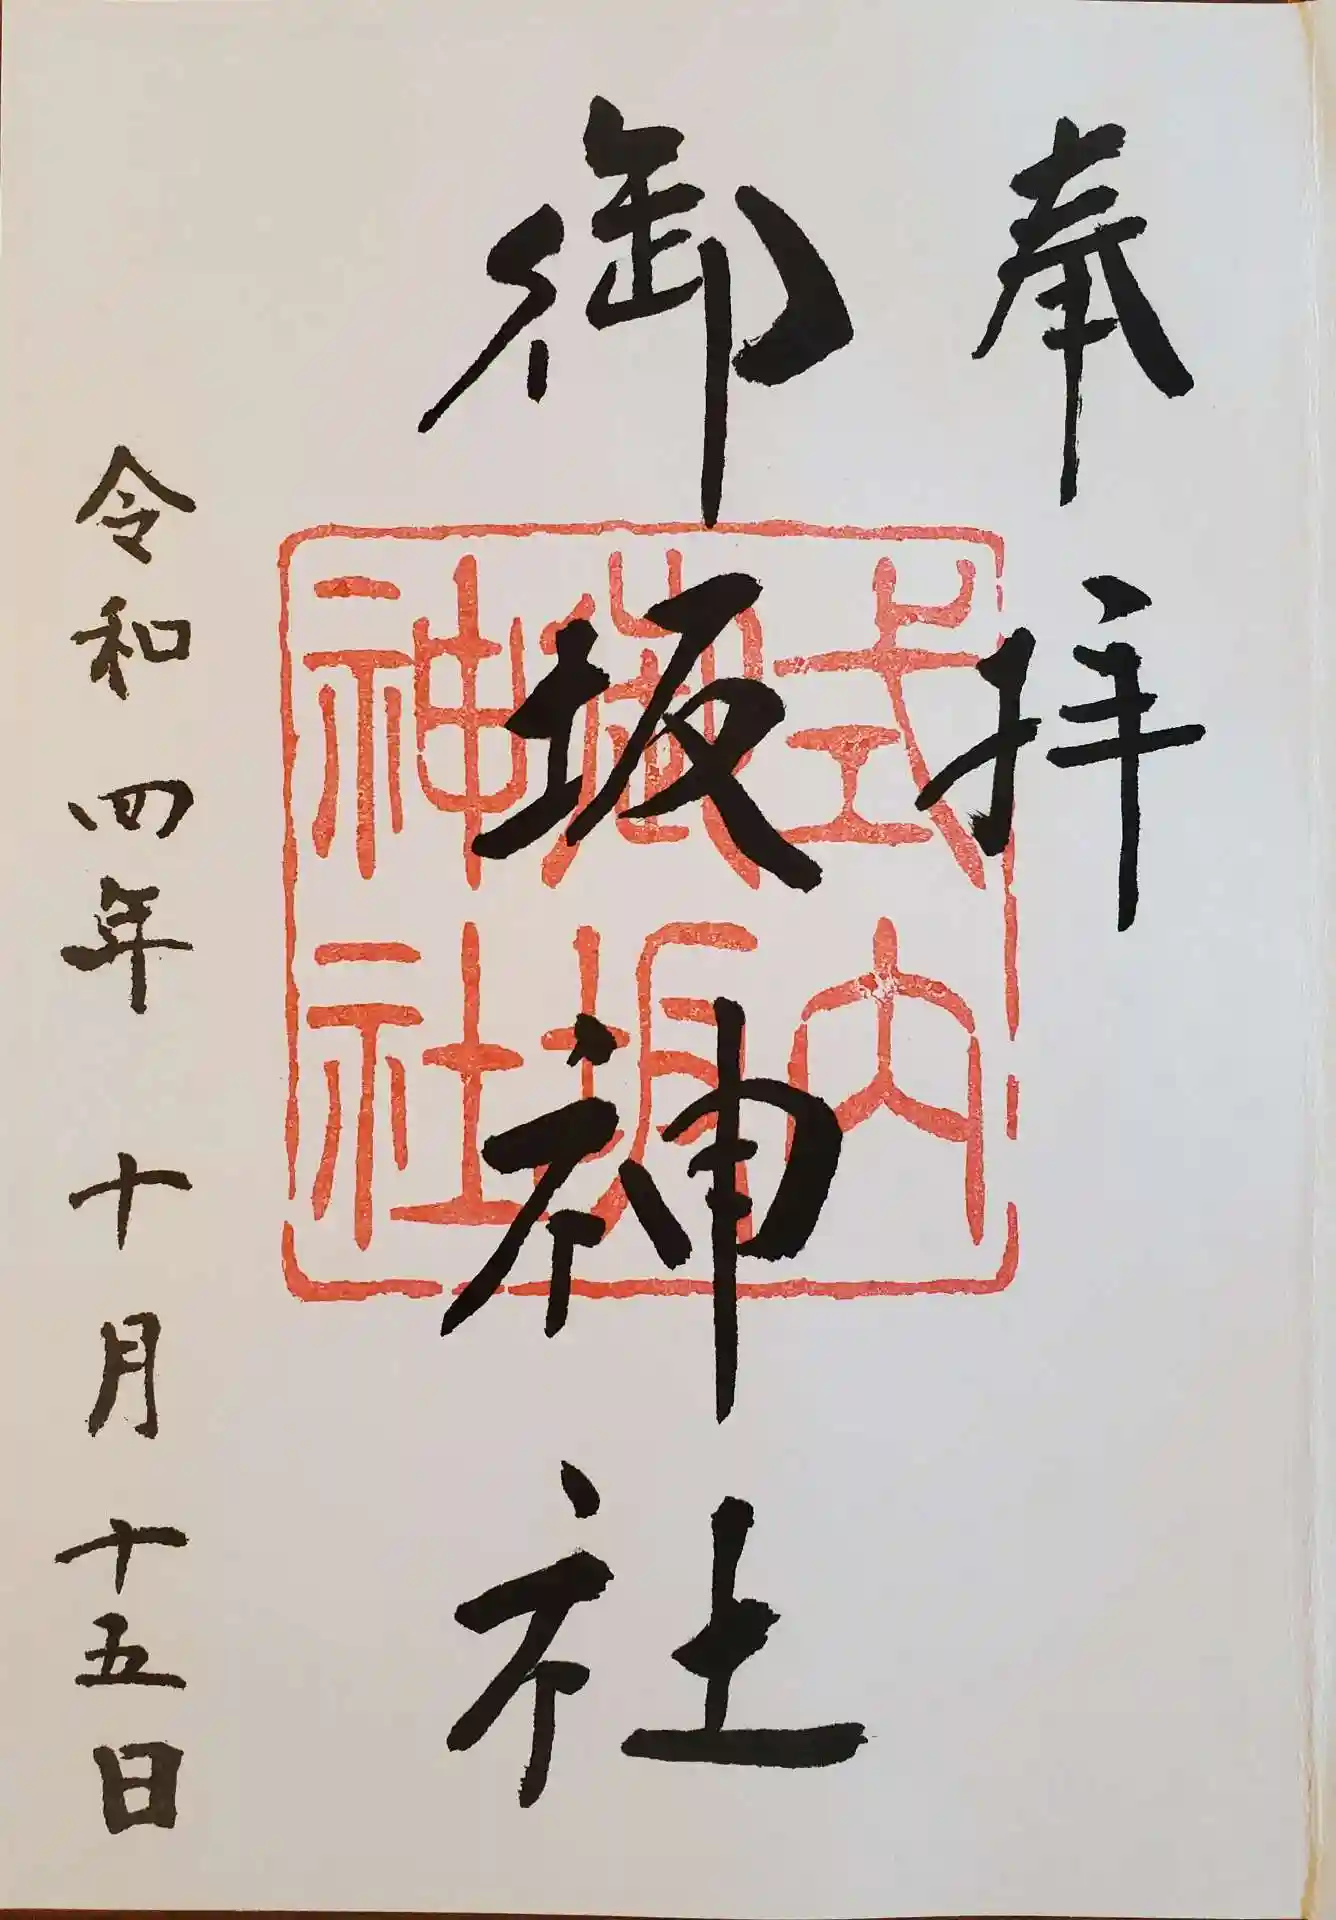 奉拝
御坂神社
式内
御坂
神社
令和四年十月十五日